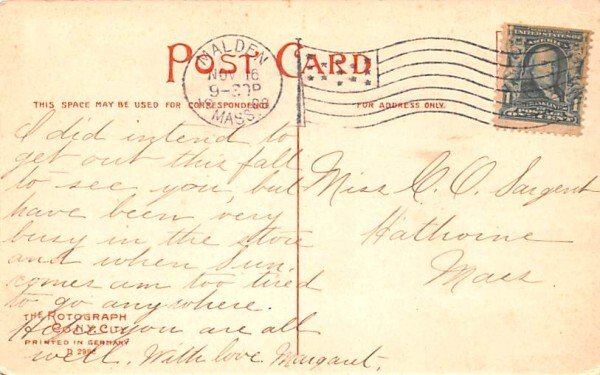 POST CARD
MALDEN
NOV 16
9-30P
MASS.
UNITED STATES OF AMERICA
THIS SPACE MAY BE USED FOR CORRESPONDENCE
FOR ADDRESS ONLY.
I did intend to
get out this fall
to see you, but
have been very
busy in the store
and when Sun.
comes am too tired
to go anywhere.
Hope you are all
well. With love Margaret.
Miss C. O. Sargent
Hathorne
Mass.
THE ROTOGRAPH
CO. N.Y. CITY
PRINTED IN GERMANY